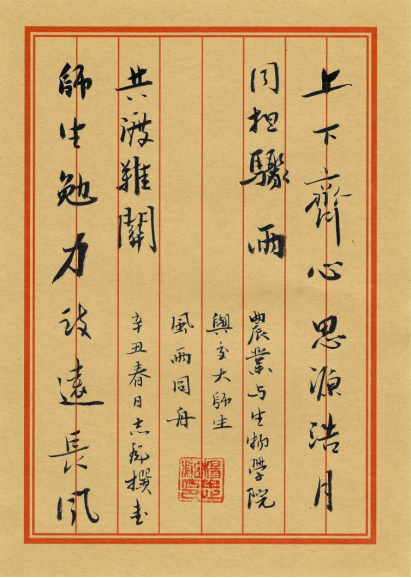 上下齊心思源浩月
同担驟雨
師生勉力致遠長風
共渡難關
農業与生物學院
與交大師生
風雨同舟
辛丑春日志撰书